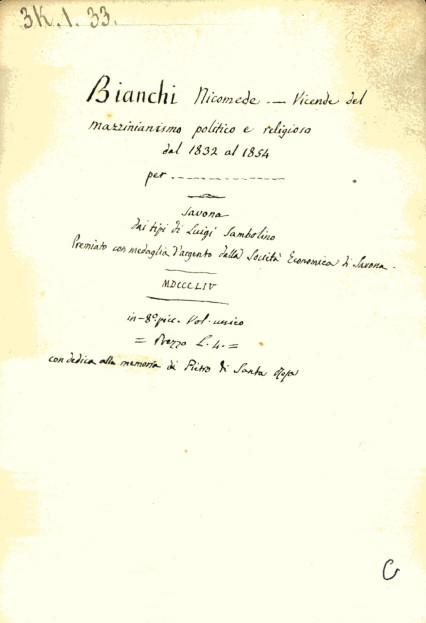 3K.1.33.
Bianchi Nicomede — Vicende del
mazzinianismo politico e religioso
dal 1832 al 1854
per
Savona
dai tipi di Luigi Sambolino
Premiato con medaglia d'argento dalla Società Economica di Savona.
MDCCCLIV
in-8º picc. Vol. unico
= Prezzo L. 4. =
con dedica alla memoria di Pietro di Santa Rosa
C